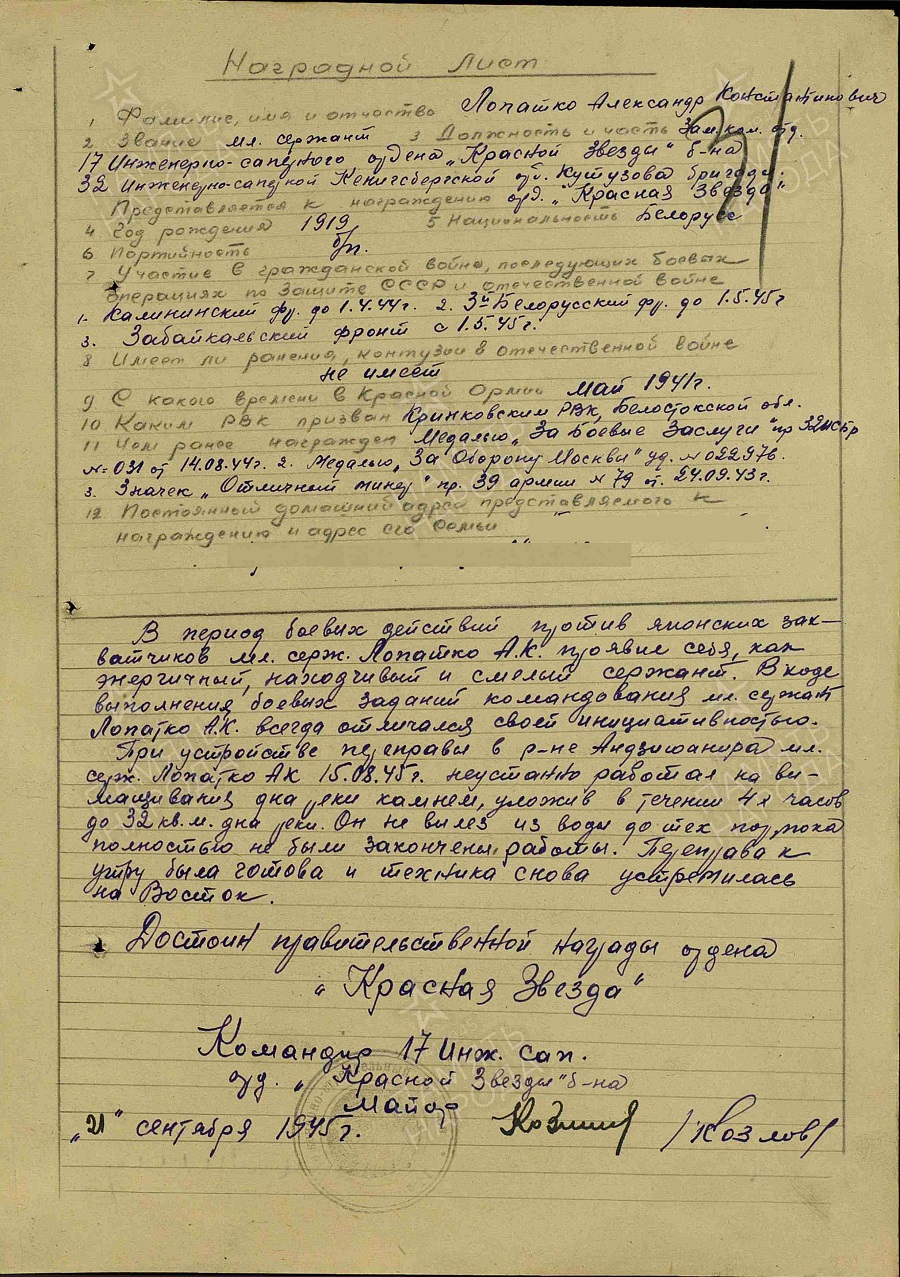 Наградной Лист
31
1. Фамилие, имя и отчество Лопатко Александр Константинович
2. Звание мл. сержант 3 Должность и часть Зам. ком. отд.
17 Инженерно-саперного ордена „Красной Звезды" б-на
32 Инженерно-саперной Кенигсбергской ор. Кутузова бригады.
Представляется к награждению орд. „Красная Звезда"
4. Год рождения 1919 5 Национальность Белорусс
6 Партийность б/п.
7 Участие в гражданской войне, последующих боевых
операциях по защите СССР и отечественной войне
1. Калининский фр. до 1.4.44г. 2. 3й Белорусский фр. до 1.5.45г
3. Забайкальский фронт с 1.5.45г.
8 Имеет ли ранения, контузии в отечественной войне
не имеет
9. С какого времени в Красной Армии май 1941г.
10 Каким РВК призван Кринковским РВК, Белостокской обл.
11 Чем ранее награжден Медалью „За Боевые Заслуги" пр 32ИСБр
№ 031 от 14.08.44г. 2. Медалью „За Оборону Москвы" уд. № 022976.
3. Значек „Отличный минер" пр. 39 армии № 79 от. 24.09.43г.
12 Постоянный домашний адрес представляемого к
награждению и адрес его семьи
В период боевых действий против японских зах-
ватчиков мл. серж. Лопатко А.К. проявил себя, как
энергичный, находчивый и смелый сержант. В ходе
выполнения боевых заданий командования мл. сержант
Лопатко А.К. всегда отличался своей инициативностью.
При устройстве переправы в р-не Андзишанира мл.
серж. Лопатко АК 15.08.45г. неустанно работал на вы-
мащивания дна реки камнем, уложив в течении 4х часов
до 32 кв. м. дна реки. Он не вылез из воды до тех пор, пока
полностью не были закончены работы. Переправа к
утру была готова и техника снова устремилась
на Восток.
Достоин правительственной награды ордена
„Красная Звезда"
Командир 17 Инж. сап.
орд. „Красной Звезды" б-на
Майор
Козлов /Козлов/
„21" сентября 1945г.